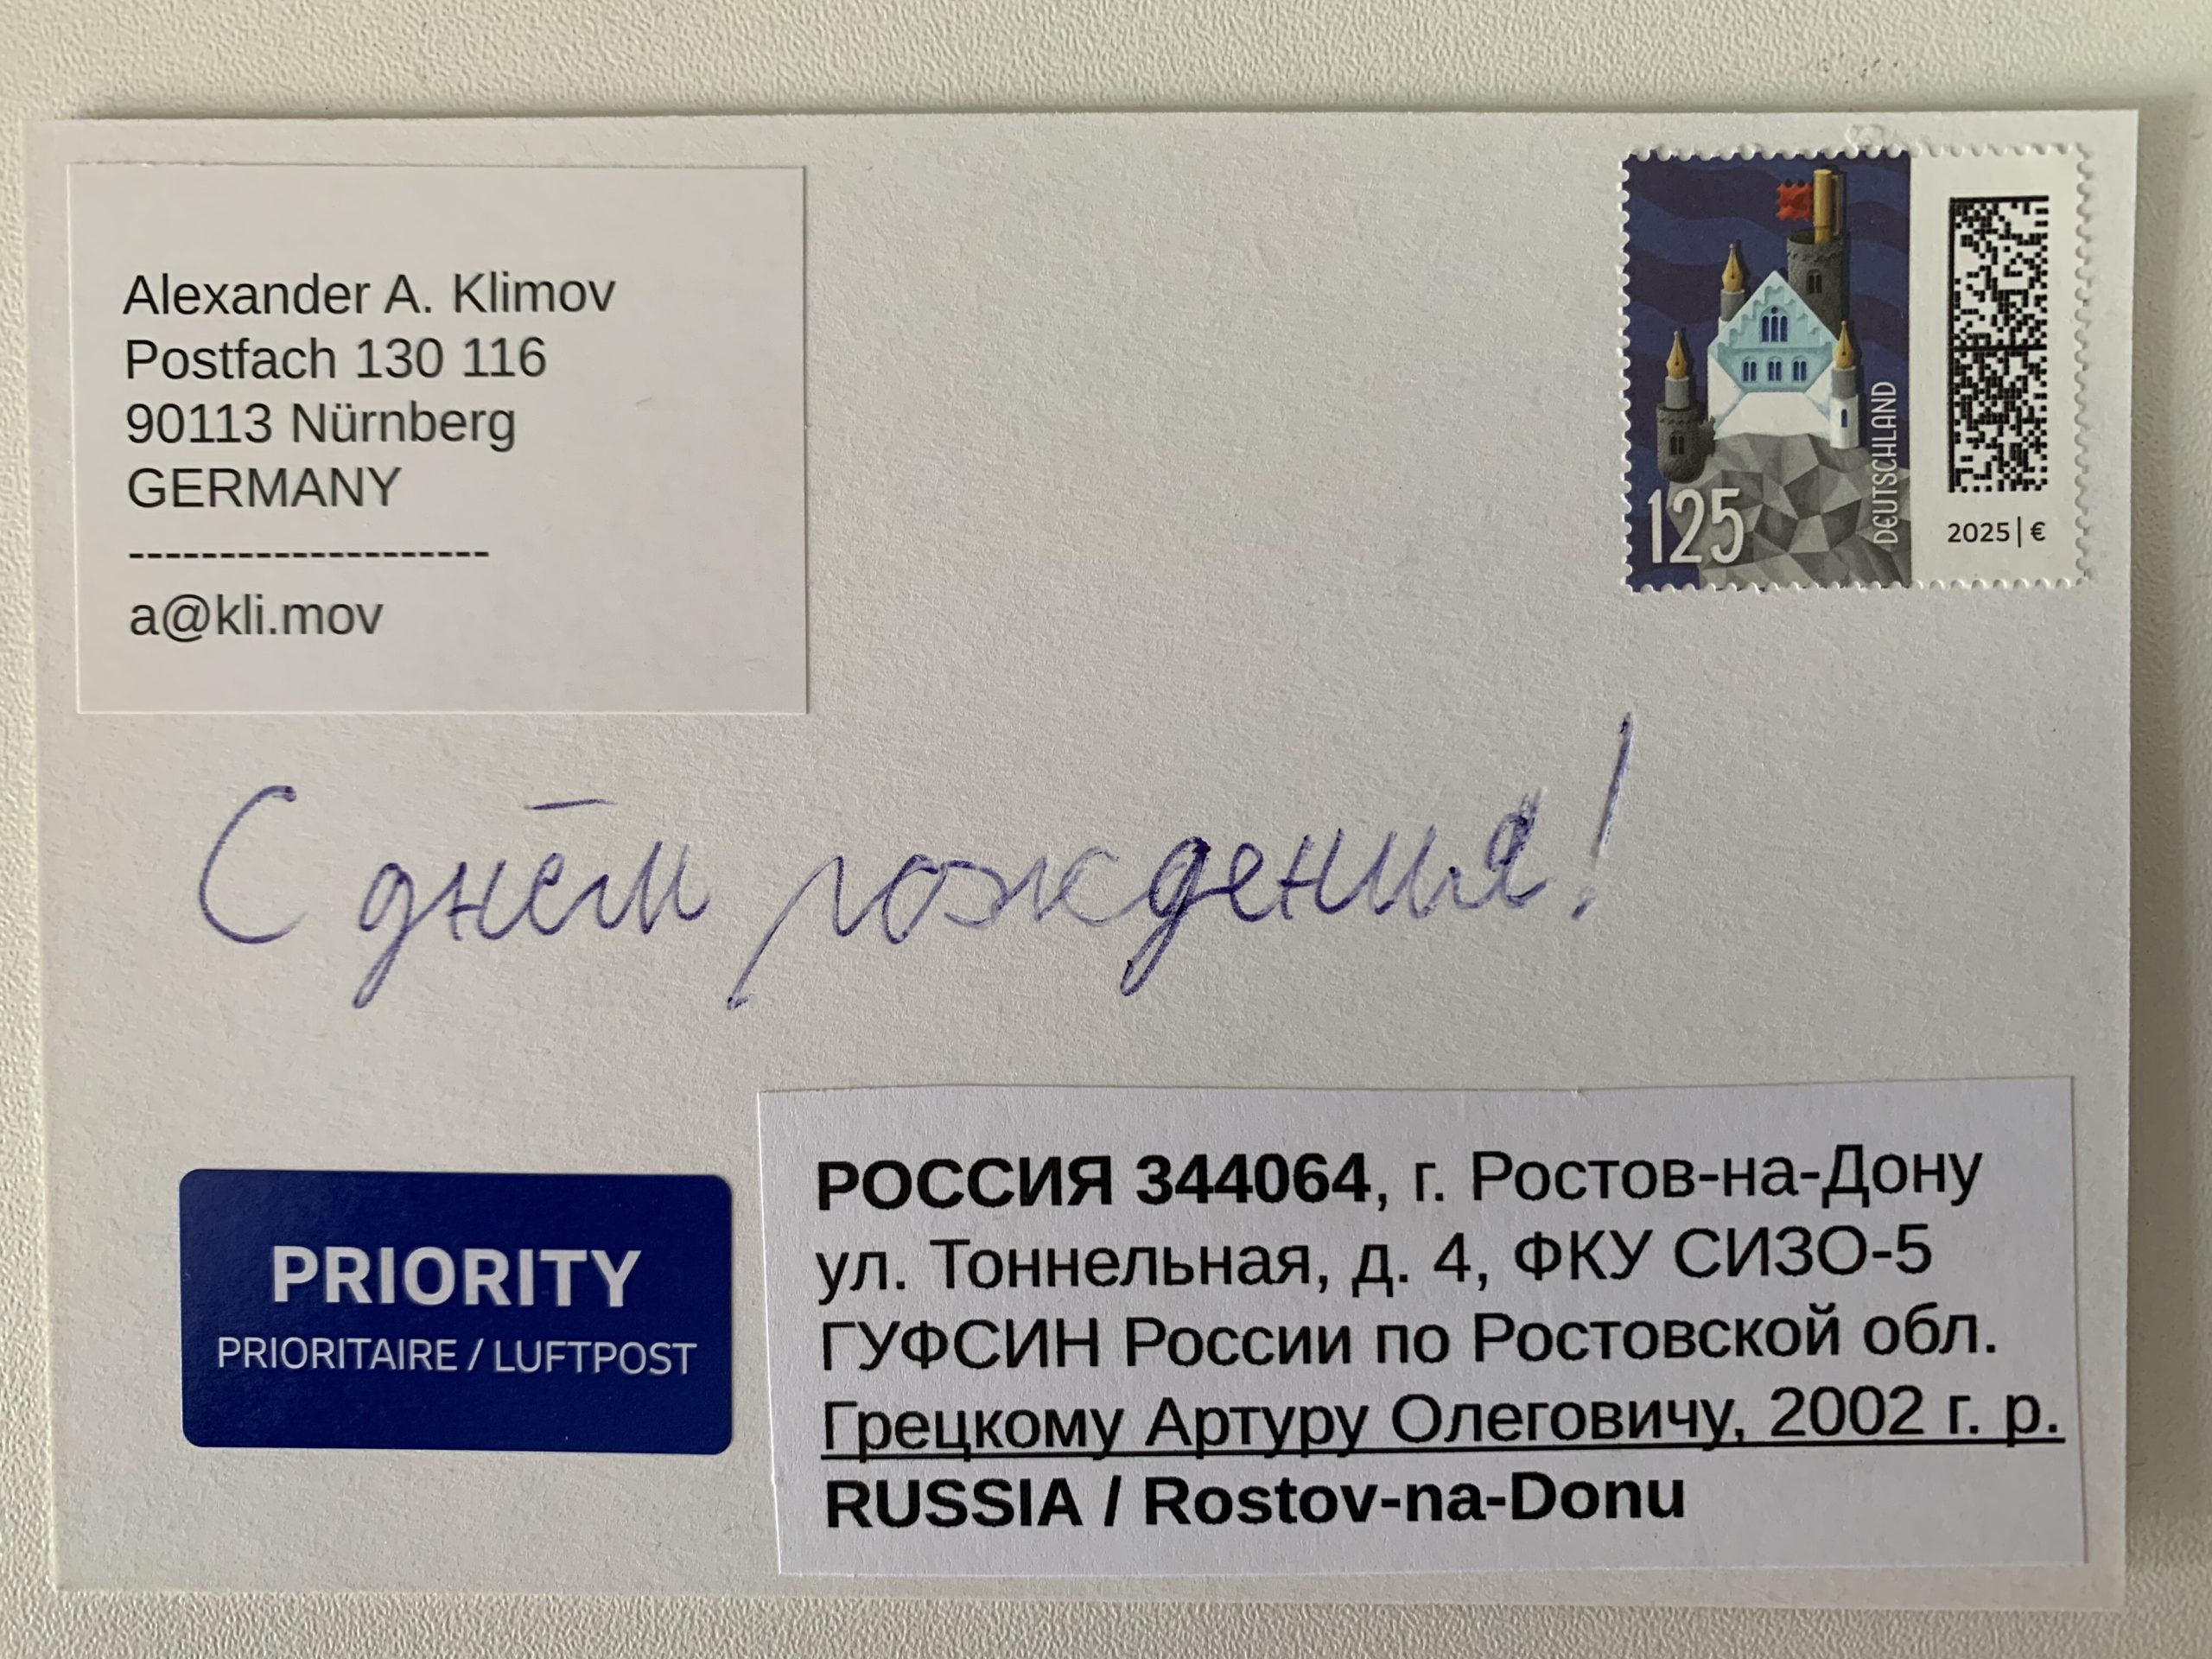 Alexander A. Klimov
Postfach 130 116
90113 Nürnberg
GERMANY
--------------------
a@kli.mov
125
DEUTSCHLAND
2025 | €
С днём рождения!
PRIORITY
PRIORITAIRE / LUFTPOST
РОССИЯ 344064, г. Ростов-на-Дону
ул. Тоннельная, д. 4, ФКУ СИЗО-5
ГУФСИН России по Ростовской обл.
Грецкому Артуру Олеговичу, 2002 г. р.
RUSSIA / Rostov-na-Donu